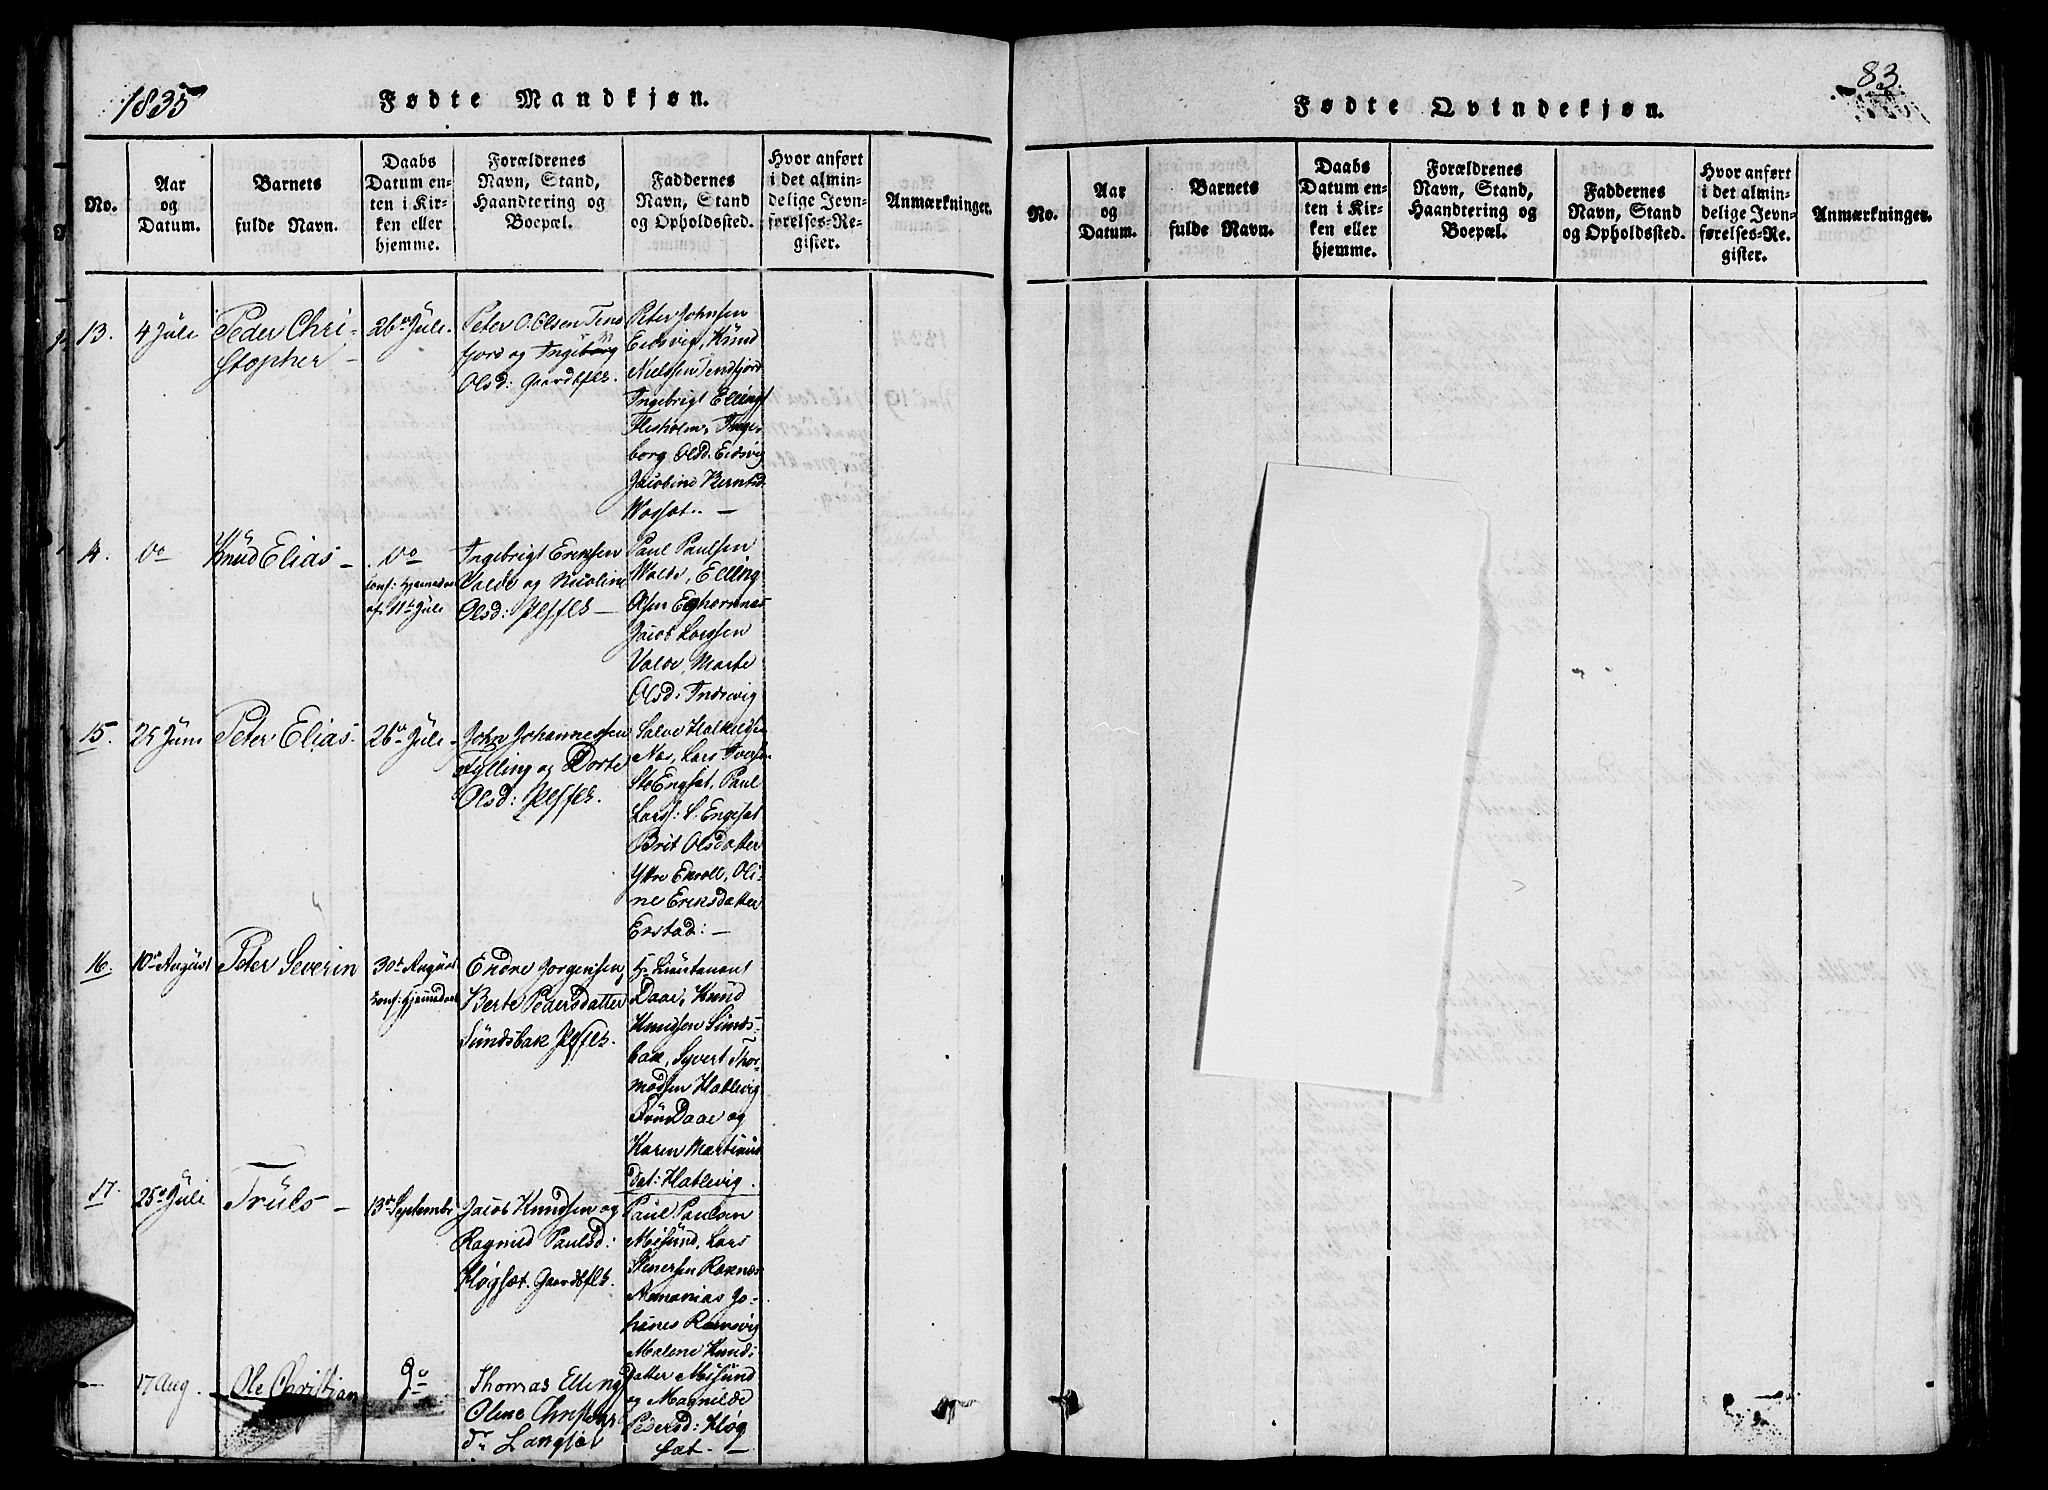 1835
Fødte Mandkjøn.
No.
Aar
og
Datum.
Barnets
fulde Navn.
Daabs
Datum en-
ten i Kir-
ken eller
hjemme.
Forældrenes
Navn, Stand,
Haandtering og
Boepæl.
Faddernes
Navn, Stand
og Opholdssted.
Hvor anført
i det almin-
delige Jevn-
førelses-Re-
gister.
Anmærkninger.
13.
4 Juli
Peder Chri-
stopher -
26de Juli.
Peter O. Olsen Tens
fjord og Ingeborg
Olsd: Gaardbfls.
Peter Johnsen
Eidsvig, Knud
Nielsen Tensfjord
Ingebrigt Ellings
Flesholm, Inge-
borg Olsd. Eidsvig
Jacobine Berntsd.
Wogsat. -
14.
do
Knud Elias -
do
conf: hjemmedøbt
af 11te Juli
Ingebrigt Eriksen
Valde og Nicoline
Olsd:
Paul Paulsen
Walde, Elling
Olsen
Jacob Larssen
Valde, Marte
Olsd: Indrevig
15.
25 Juni
Peter Elias
26de Juli
John Johannessen
Fylling og Dorte
Olsd:
Lars Iversen
St Engsat, Paul
Larss: L. Engesat
Brit Olsdatter
Ytre Ekroll, Oli-
ne Eriksdatter
Erstad: -
16.
10de August
Peter Severin
30te August
conf: hjemmedøbt
Endre Jørgensen,
Berte Pedersdatter
Sundsbak
Hr Lieutenant
Daae, Knud
Knudsen Sunds-
bak, Syvert Tho-
modsen Hatlevig
Frue Daae og
Karen Martinus
dat: Hatlevig.
17.
25de Juli
Truls -
13de Septembr
Jacob Knudsen og
Ragnild Paulsd:
Kløgsæt. Gaardbfls.
Paul Paulsen
Misund, Lars
Stenersen Raknes
Annanias Jo-
hanes Ramsvig
Malene Knuds
datter Misund
og Magnilde
Pedersd: Kløg
sæt. -
-
17 Aug.
Ole Christian
do
Thomas Elling
Oline Christens
dr Langset
83
Fødte Qvindekjøn.
No.
Aar
og
Datum.
Barnets
fulde Navn.
Daabs
Datum en-
ten i Kir-
ken eller
hjemme.
Forældrenes
Navn, Stand,
Haandtering og
Boepæl.
Faddernes
Navn, Stand
og Opholdssted.
Hvor anført
i det almin-
delige Jevn-
førelses-Re-
gister.
Anmærkninger.